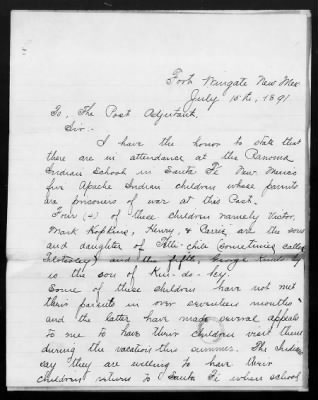 Fort Wingate New Mex
July 15th, 1891
To, The Post Adjutant.
Sir:-
I have the honor to state that
there are in attendance at the Ramona
Indian School in Santa Fé New Mexico
five Apache Indian children whose parents
are prisoners of war at this Post.
Four (4) of these children namely Victor,
Mark Hopkins, Henry, & Carrie are the sons
and daughter of (sometimes called
and the fifth, George
is the son of
Some of these children have not met
their parents in over seventeen months
and the latter have made several appeals
to me to have their children visit them
during the vacation this summer. The Indians
say they are willing to have their
children return to Santa Fé when school